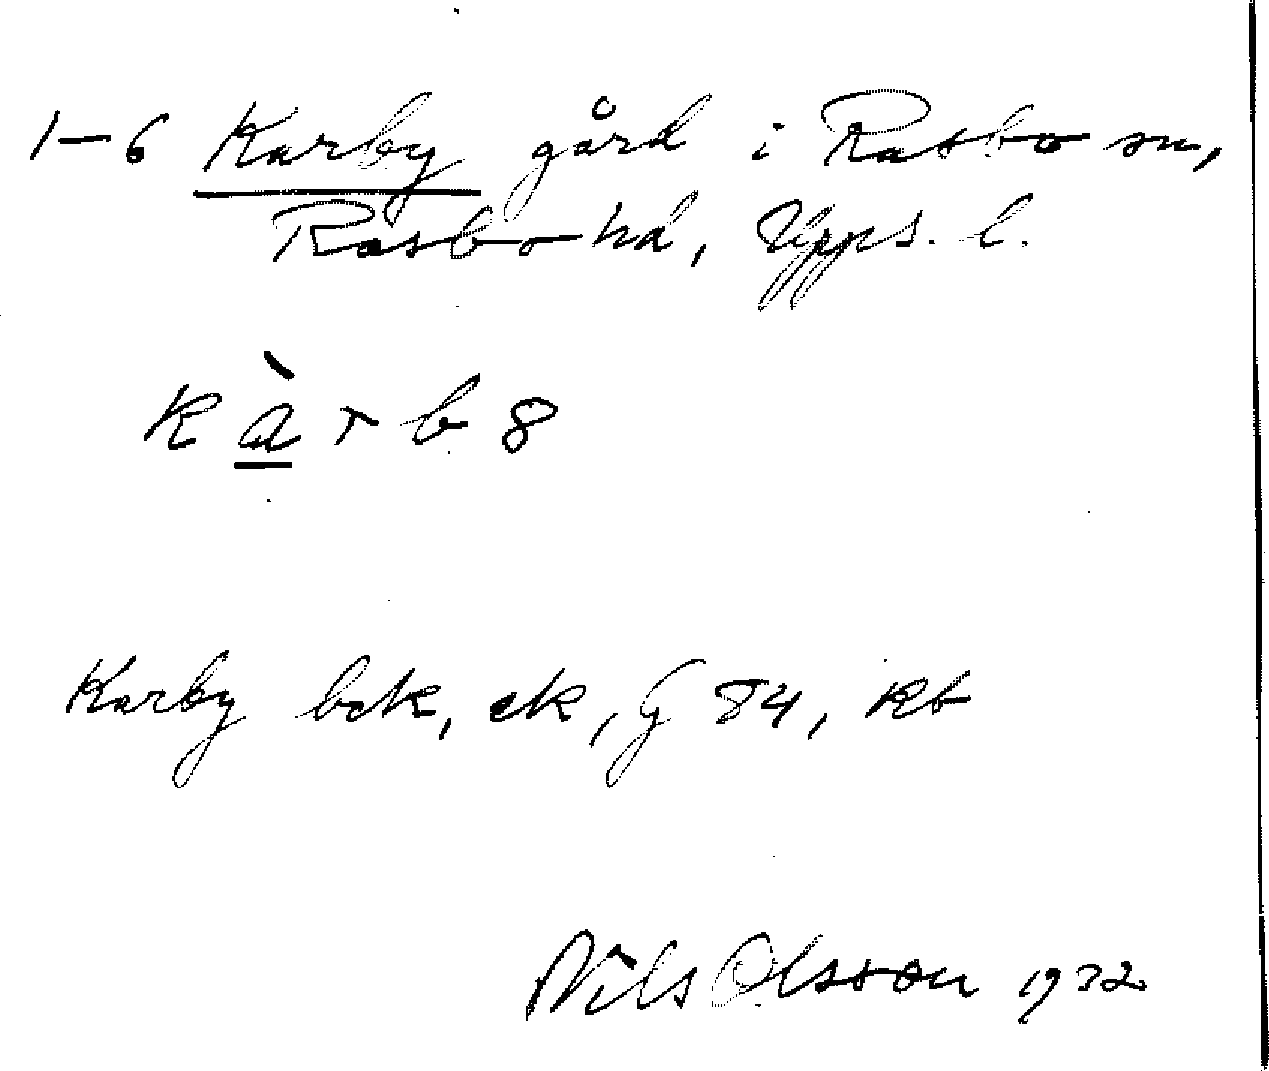 1-6 Karby gård i Rasbo sn,
Rasbo hd, Upps. l.
k à r b 8
Karby bck, ek, G 84, kb
Nils Olsson 1932